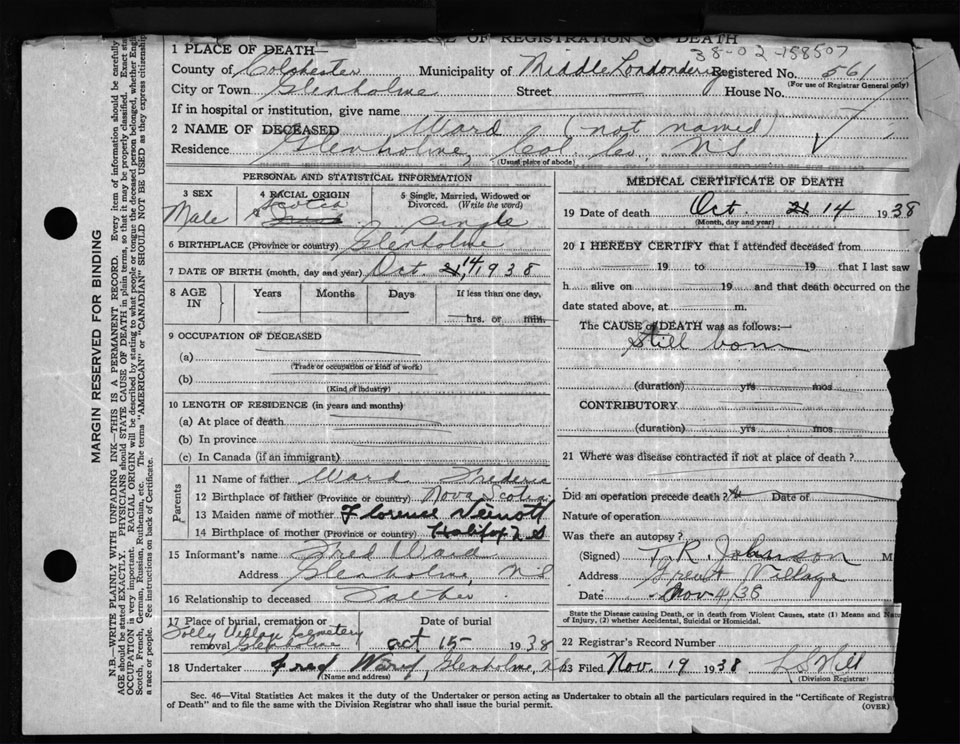 OF REGISTRATION OF DEATH
38-02-158507
1 PLACE OF DEATH—
County of Colchester Municipality of Middle Londonderry Registered No. 561
(For use of Registrar General only)
City or Town Glenholme Street House No.
If in hospital or institution, give name
2 NAME OF DECEASED Ward (not named)
Residence Glenholme, Col Co, NS
(Usual place of abode)
PERSONAL AND STATISTICAL INFORMATION
3 SEX 4 RACIAL ORIGIN 5 Single, Married, Widowed or
Divorced. (Write the word)
Male single
6 BIRTHPLACE (Province or country) Glenholme
7 DATE OF BIRTH (month, day and year) Oct. 21, 14 1938
8 AGE IN Years Months Days If less than one day,
hrs. or min.
9 OCCUPATION OF DECEASED
(a)
(Trade or occupation or kind of work)
(b)
(Kind of Industry)
10 LENGTH OF RESIDENCE (in years and months)
(a) At place of death
(b) In province
(c) In Canada (if an immigrant)
Parents
11 Name of father Ward
12 Birthplace of father (Province or country) Nova Scotia
13 Maiden name of mother Florence Veinott
14 Birthplace of mother (Province or country) Halifax N S
15 Informant's name Fred Ward
Address Glenholme, NS
16 Relationship to deceased Father
17 Place of burial, cremation or Date of burial
removal Folly Village Cemetery
Glenholme Oct 15 1938
18 Undertaker Fred Ward, Glenholme, NS
(Name and address)
MEDICAL CERTIFICATE OF DEATH
19 Date of death Oct. 21 14 1938
(Month, day and year)
20 I HEREBY CERTIFY that I attended deceased from
19 to 19 that I last saw
h alive on 19 and that death occurred on the
date stated above, at m.
The CAUSE of DEATH was as follows:—
Still born
(duration) yrs mos
CONTRIBUTORY
(duration) yrs mos
21 Where was disease contracted if not at place of death?
Did an operation precede death? No Date of
Nature of operation
Was there an autopsy?
(Signed) T. R. Johnson M
Address Great Village
Date Nov 4/38
State the Disease causing Death, or in death from Violent Causes, state (1) Means and
of Injury, (2) whether Accidental, Suicidal or Homicidal.
22 Registrar's Record Number
23 Filed Nov. 19 1938
(Division Registrar)
Sec. 46—Vital Statistics Act makes it the duty of the Undertaker or person acting as Undertaker to obtain all the particulars required in the "Certificate of Registra
of Death" and to file the same with the Division Registrar who shall issue the burial permit. (OVER)
MARGIN RESERVED FOR BINDING
N.B.—WRITE PLAINLY WITH UNFADING INK—THIS IS A PERMANENT RECORD. Every item of information should be carefully
AGE should be stated EXACTLY. PHYSICIANS should STATE CAUSE OF DEATH in plain terms, so that it may be properly classified. Exact
OCCUPATION is very important. RACIAL ORIGIN will be described by stating to what people or tongue the deceased person belonged, whether
Scotch, French, German, Russian, Ruthenian, etc. The terms "AMERICAN" or "CANADIAN" SHOULD NOT BE USED as they express citizenship
a race or people. See instructions on back of Certificate.